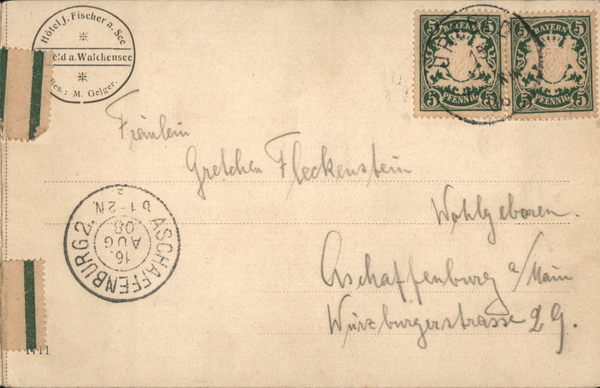 Hôtel J. Fischer a. See
eld a. Walchensee
Bes.: M. Geiger.
BAYERN
5 5
PFENNIG
BAYERN
5 5
PFENNIG
Fräulein
Gretchen Fleckenstein
Wohlgeboren.
Aschaffenburg a/Main
Würzburgerstrasse 29.
ASCHAFFENBURG 2.
16.
AUG
08
1-2N.